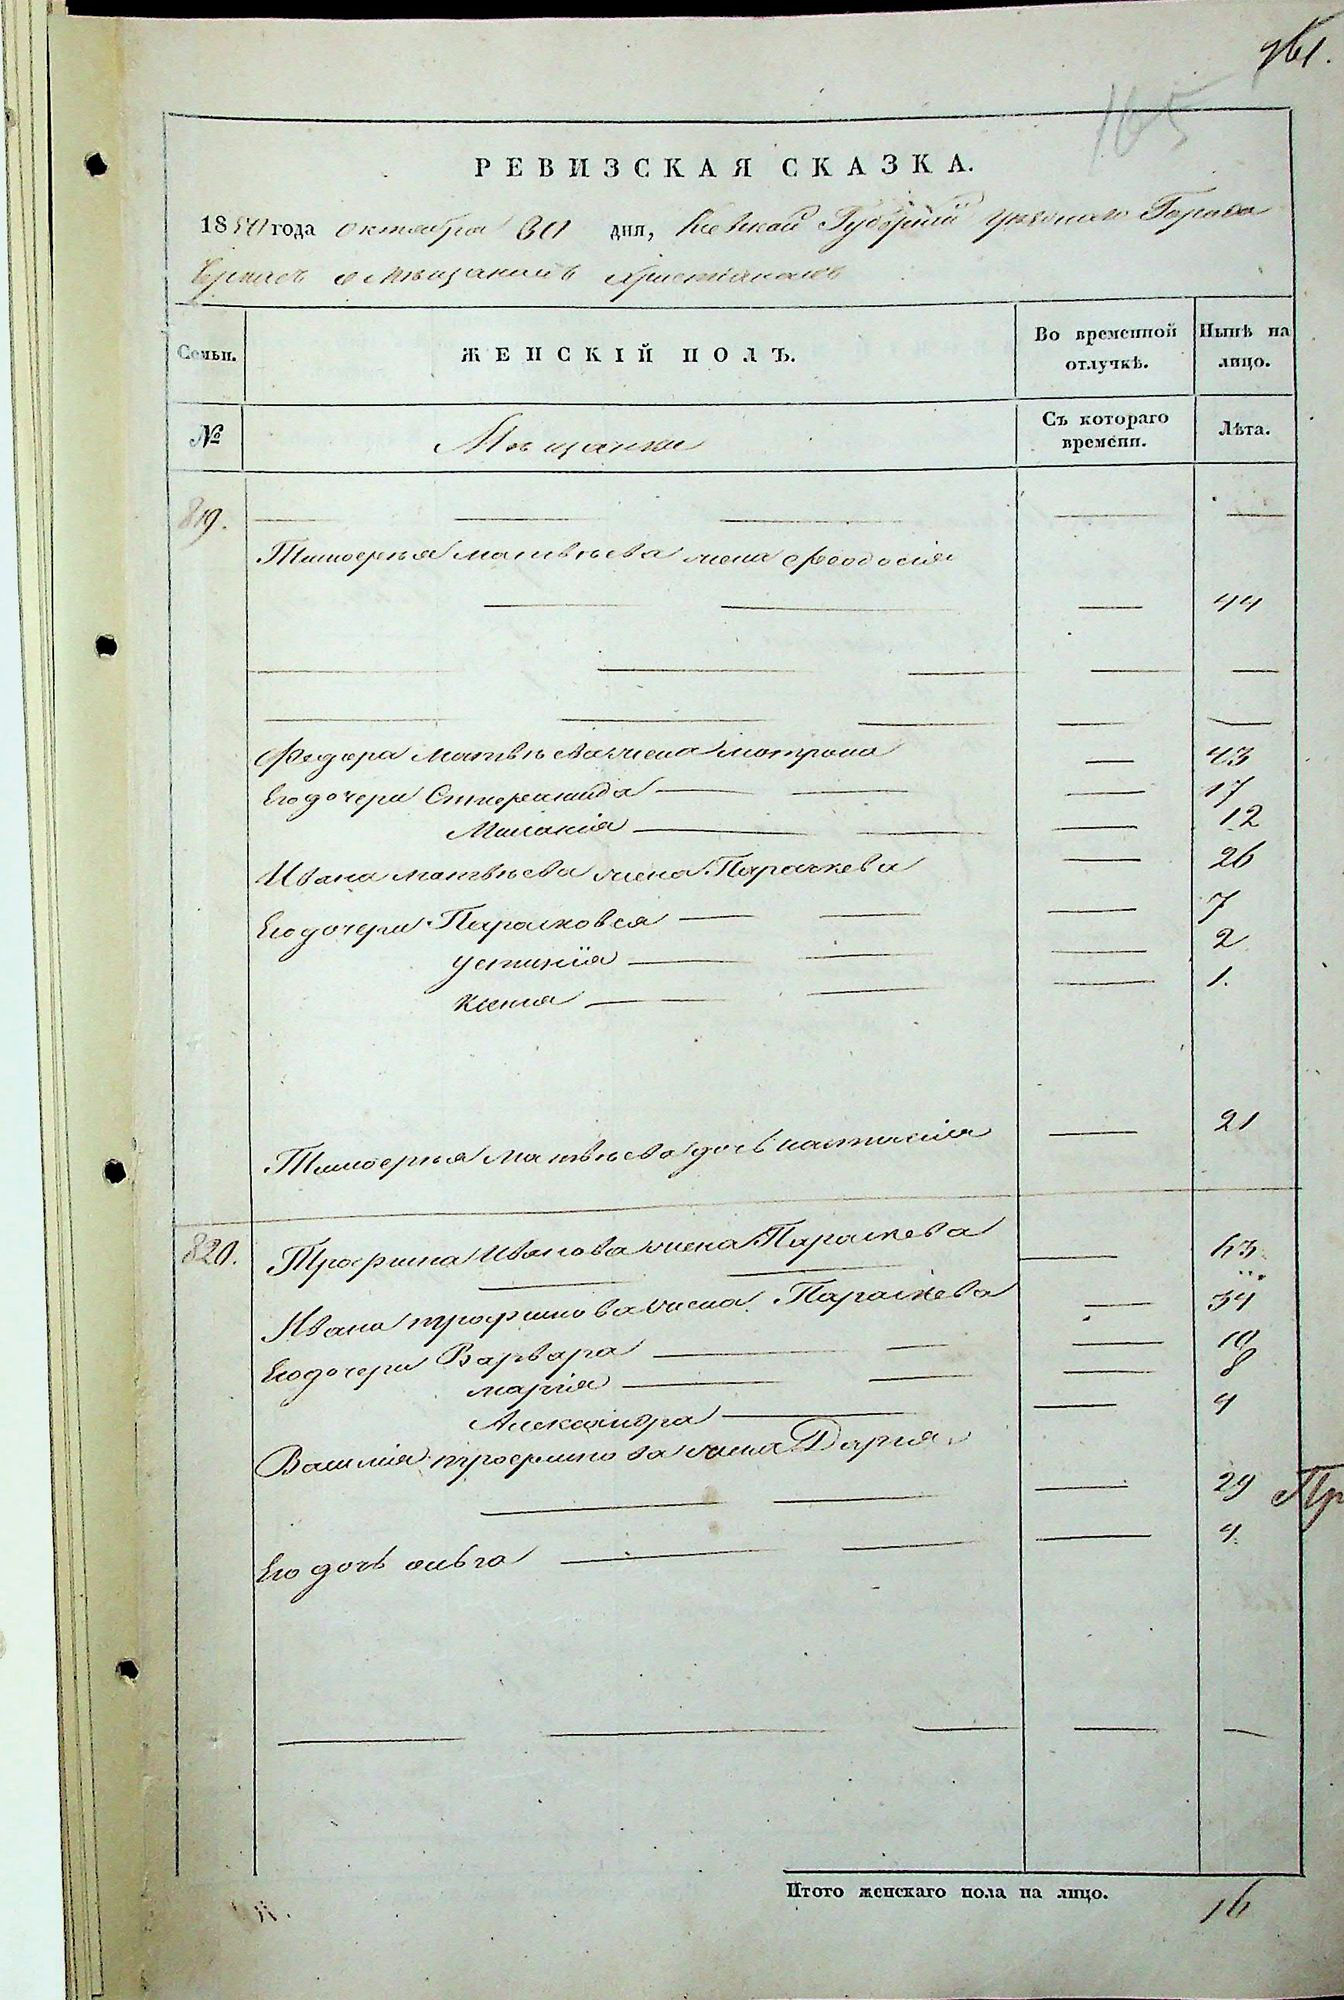 961.
165
РЕВИЗСКАЯ СКАЗКА.
1850 года октября 30 дня, Киевской Губернии уезднаго Города
Черкас о мѣщанахъ христианахъ
Семьи. ЖЕНСКІЙ ПОЛЪ. Во временной отлучкѣ. Нынѣ на лицо.
№ Мѣщанки Съ котораго времени. Лѣта.
819. — — — — —
Тимофея матвѣева жена феодосія
— — — 44
— — — — —
— — — — —
Федора матвѣева жена мотрона — 43
Его дочери Степанида — — — 17
Маланія — — — 12
Ивана матвѣева жена Параскева — 26
Его дочери Парасковея — — — 7
устинія — — — 2
Ксения — — — 1.
Тимофея матвѣева дочь настасия — 21
820. Трофима Иванова жена Параскева — 63
— —
Ивана трофимова жена Параскева — 34
Его дочери Варвара — — — 10
мария — — — 8
Александра — — 4
Василия трофимова жена Дария
— — — 29 Пр
Его дочь ольга — — — 4
— — — — —
Итого женскаго пола на лицо. 16